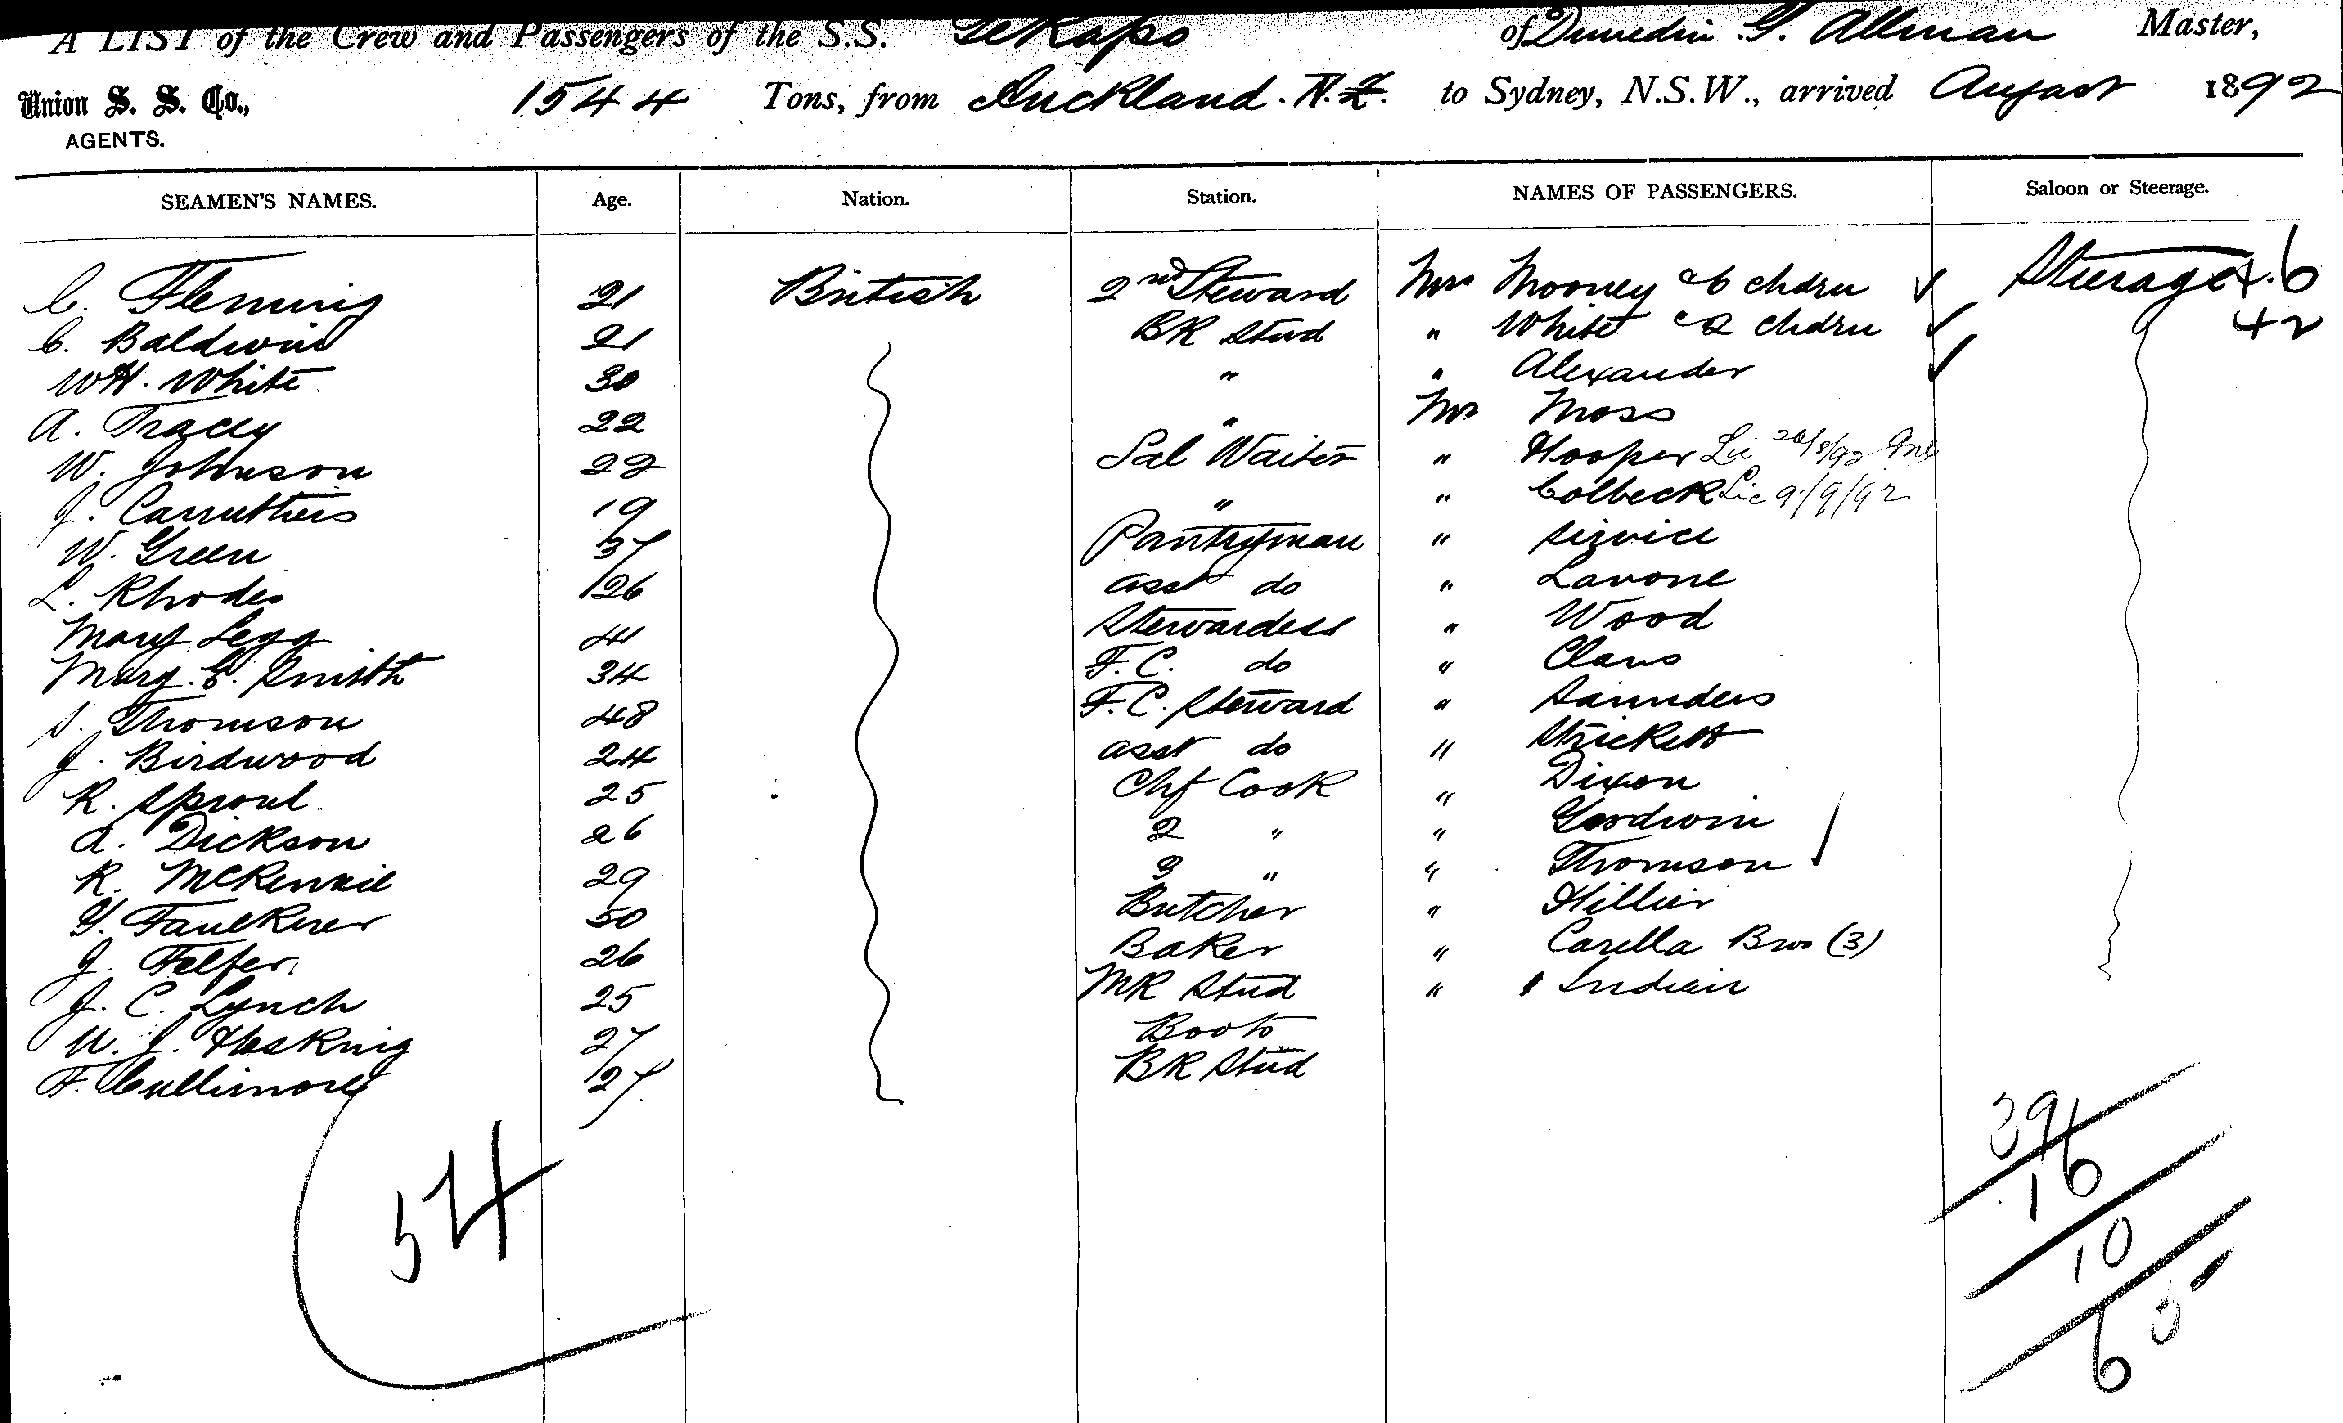 A LIST of the Crew and Passengers of the S.S. Tekapo of Dunedin G. Allman Master,
Union S. S. Co., 1544 Tons, from Auckland. N.Z. to Sydney, N.S.W., arrived August 1892
AGENTS.
SEAMEN'S NAMES. Age. Nation. Station. NAMES OF PASSENGERS. Saloon or Steerage.
C. Fleming 21 British 2nd Steward Mrs Mooney & 6 chdrn Steerage 6
C. Baldwin 21 BR Stud " White & 2 chdrn 42
W H. White 30 " " Alexander
A. Tracey 22 " Mr Moss
W. Johnson 22 Sal Waiter " Hooper
J. Carruthers 19 " " Colbeck Lic 9/9/92
W. Green 37 Pantryman " Service
L. Rhodes 26 asst do " Lavone
Mary Legg 41 Stewardess " Wood
Mary E. Smith 34 F.C. do " Claus
S. Thomson 48 F.C. Steward " Saunders
J. Birdwood 24 asst do " Strickett
R. Sproul 25 Chf Cook " Dixon
A. Dickson 26 2 " " Goodwin
R. McKenzie 29 3 " " Thomson
G. Faulkner 50 Butcher " Hillier
J. Telfer 26 Baker " Carella Bros (3)
J. C. Lynch 25 MR Stud " 1 Indian
W. J. Hosking 27 Boots
F. Cullimore 27 BR Stud
39
54 16
10
65